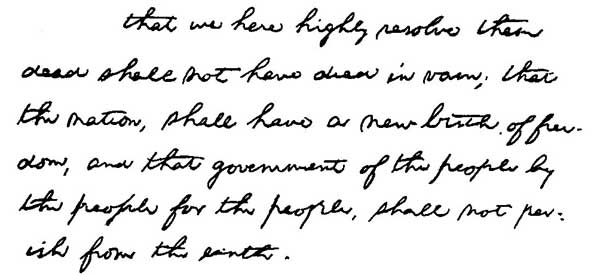 that we here highly resolve these
dead shall not have died in vain; that
the nation, shall have a new birth of free-
dom, and that government of the people by
the people for the people, shall not per-
ish from the earth.